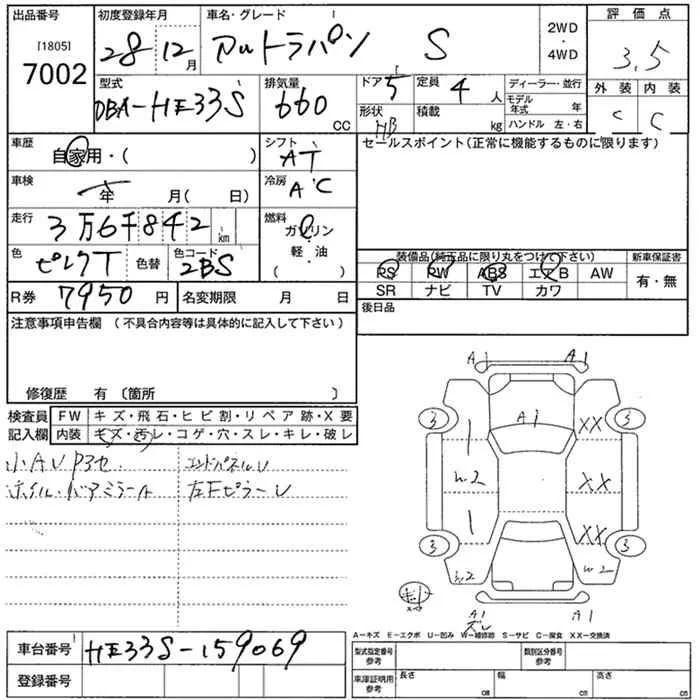 出品番号
[1805]
7002
初度登録年月
28 12月
車名・グレード
アルトラパン S
2WD
・
4WD
評価点
3.5
外装 内装
C C
型式
DBA-HE33S
排気量
660 CC
ドア 5
形状 HB
定員 4人
積載 kg
ディーラー・並行
モデル年式 年
ハンドル 左・右
車歴
自家用・( )
シフト
AT
車検
年 月( 日)
冷房
AC
走行
3万6千842 km
燃料
ガソリン
軽・油
( )
色
ピンクT
色替
色コード
2BS
R券 7950円
名変期限 月 日
セールスポイント(正常に機能するものに限ります)
装備品(純正品に限り丸をつけて下さい)
新車保証書
PS PW ABS エアB AW
SR ナビ TV カワ
有・無
後日品
注意事項申告欄 (不具合内容等は具体的に記入して下さい)
修復歴 有 〔箇所 〕
検査員
記入欄
FW キズ・飛石・ヒビ割・リペア跡・X要
内装 キズ・汚レ・コゲ・穴・スレ・キレ・破レ
小AU Pヨセ
エンドパネルU
ホイル・ドアミラーA
左FピラーU
A1 A1
3 A1 XX 3
W2 XX
XX
3 3
W2 W2
A1 A1
ズレ
A-キズ E-エクボ U-凹み W-補修跡 S-サビ C-腐食 XX-交換済
車台番号 HE33S-159069
登録番号
型式指定番号
参考
類別区分番号
参考
車庫証明用
参考
長さ cm
幅 cm
高さ cm